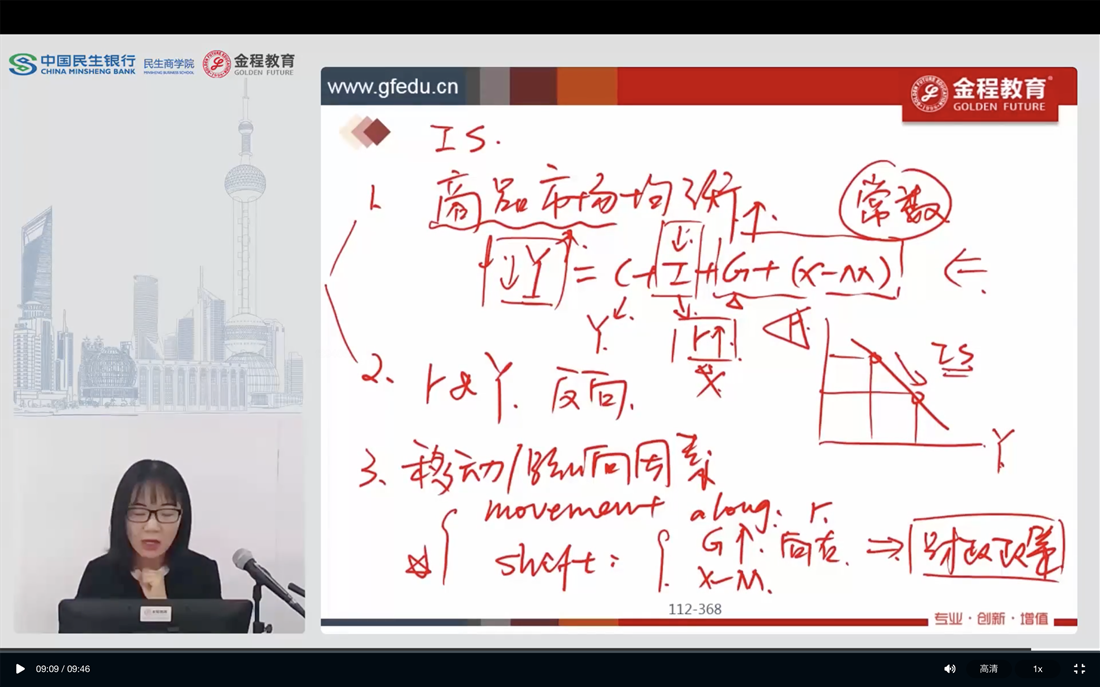 中国民生银行
CHINA MINSHENG BANK
民生商学院
MINSHENG BUSINESS SCHOOL
金程教育
GOLDEN FUTURE
www.gfedu.cn
金程教育
GOLDEN FUTURE
IS.
1. 商品市场均衡 ↑. 常数
↓Y = C+I+G+(X-M) ⇐
Y r↑
X
IS
Y
2. r & Y. 反向.
3. 移动/影响因素
movement along. r.
shift: G↑. 向右. ⇒ 财政政策
X-M.
112-368
专业·创新·增值
09:09 / 09:46
高清
1x